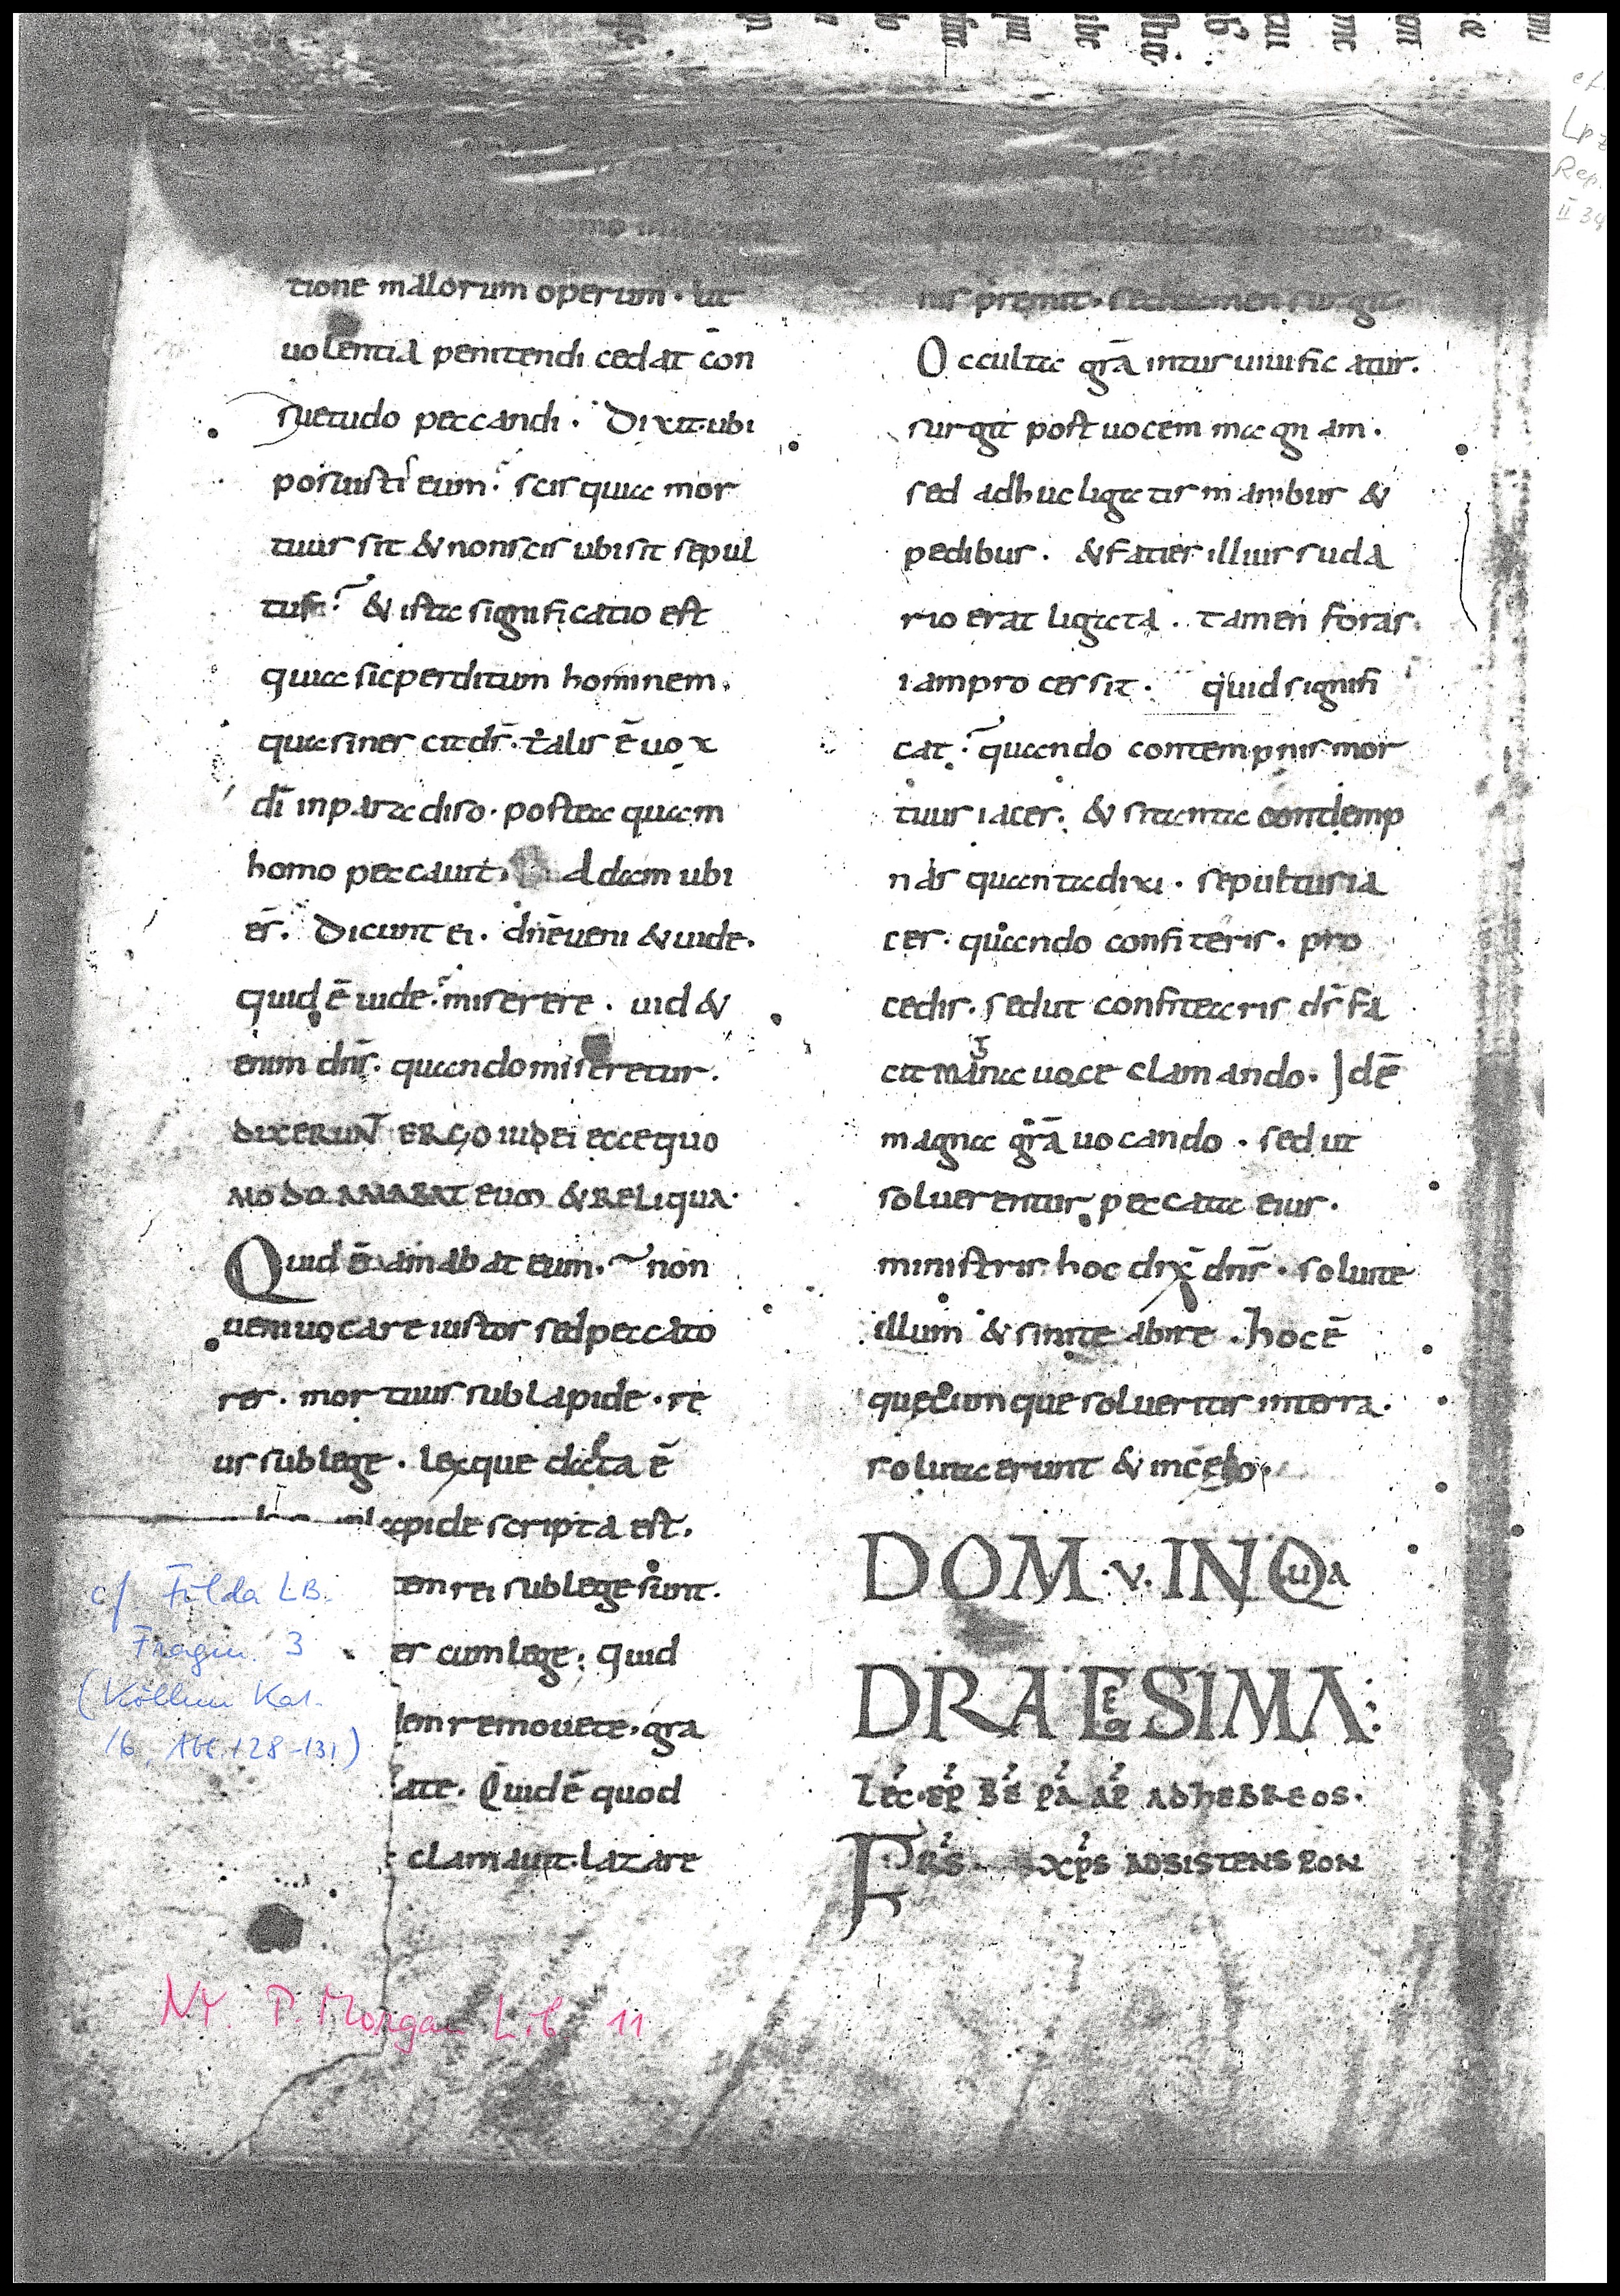 tionē malorum operum. ut
uolentia penitendi cedat con
suetudo peccandi. Dixit. ubi
posuisti eum? scis quia mor
tuus sit & non scis ubi sit sepul
tus? & ista significatio est
quia sic perditum hominem.
quasi nesciat ds̄. talis ē uox
dī in paradiso. postea quam
homo peccauit. Adam ubi
es. Dicunt ei. dn̄e ueni & uide.
quid ē uide? miserere. uid&
enim dn̄s. quando miseretur.
DIXERUNT ERGO IUDEI ECCE QUO
MODO AMABAT EUM & RELIQUA.
Quid ē amabat eum. non
ueni uocare iustos sed pecca​to
res. mortuus sub lapide. re
us sub lege. lex que data ē
lapide scripta est.
tem rei sub lege sunt.
cum lege. Quid
dem remouete. gra
ate. Quid ē quod
clamauit. lazare
nis premit. sed tamen surgit.
Occulta grā intus uiuificatur.
surgit post uocem magnam.
sed adhuc ligatis manibus &
pedibus. & facies illius suda
rio erat ligata. tamen foras
iam processit. quid signifi
cat? quando contempnis mor
tuus iaces. & si tanta contemp
nas quanta dixi. sepultus ia
ces. quando confiteris. pro
cedis. sed ut confitearis ds̄ fa
cit magna uoce clamando. Id ē
magna grā uocando. sed ut
soluerentur peccata eius.
ministris hoc dix̄ dn̄s. soluite
illum & sinite abire. hoc ē
quecumque solueritis in terra.
soluta erunt & in celo.
DOM. V. IN QUA
DRAGESIMA:
Lec. ep̄ BE PA AP AD HEBREOS.
FRS XPS ADSISTENS PON
cf.
Lpz
Rep.
II 34
cf Fulda LB.
Fragm. 3
(Köllner Kat.
16, Abb. 128-131)
NY. P. Morgan Lib. 11